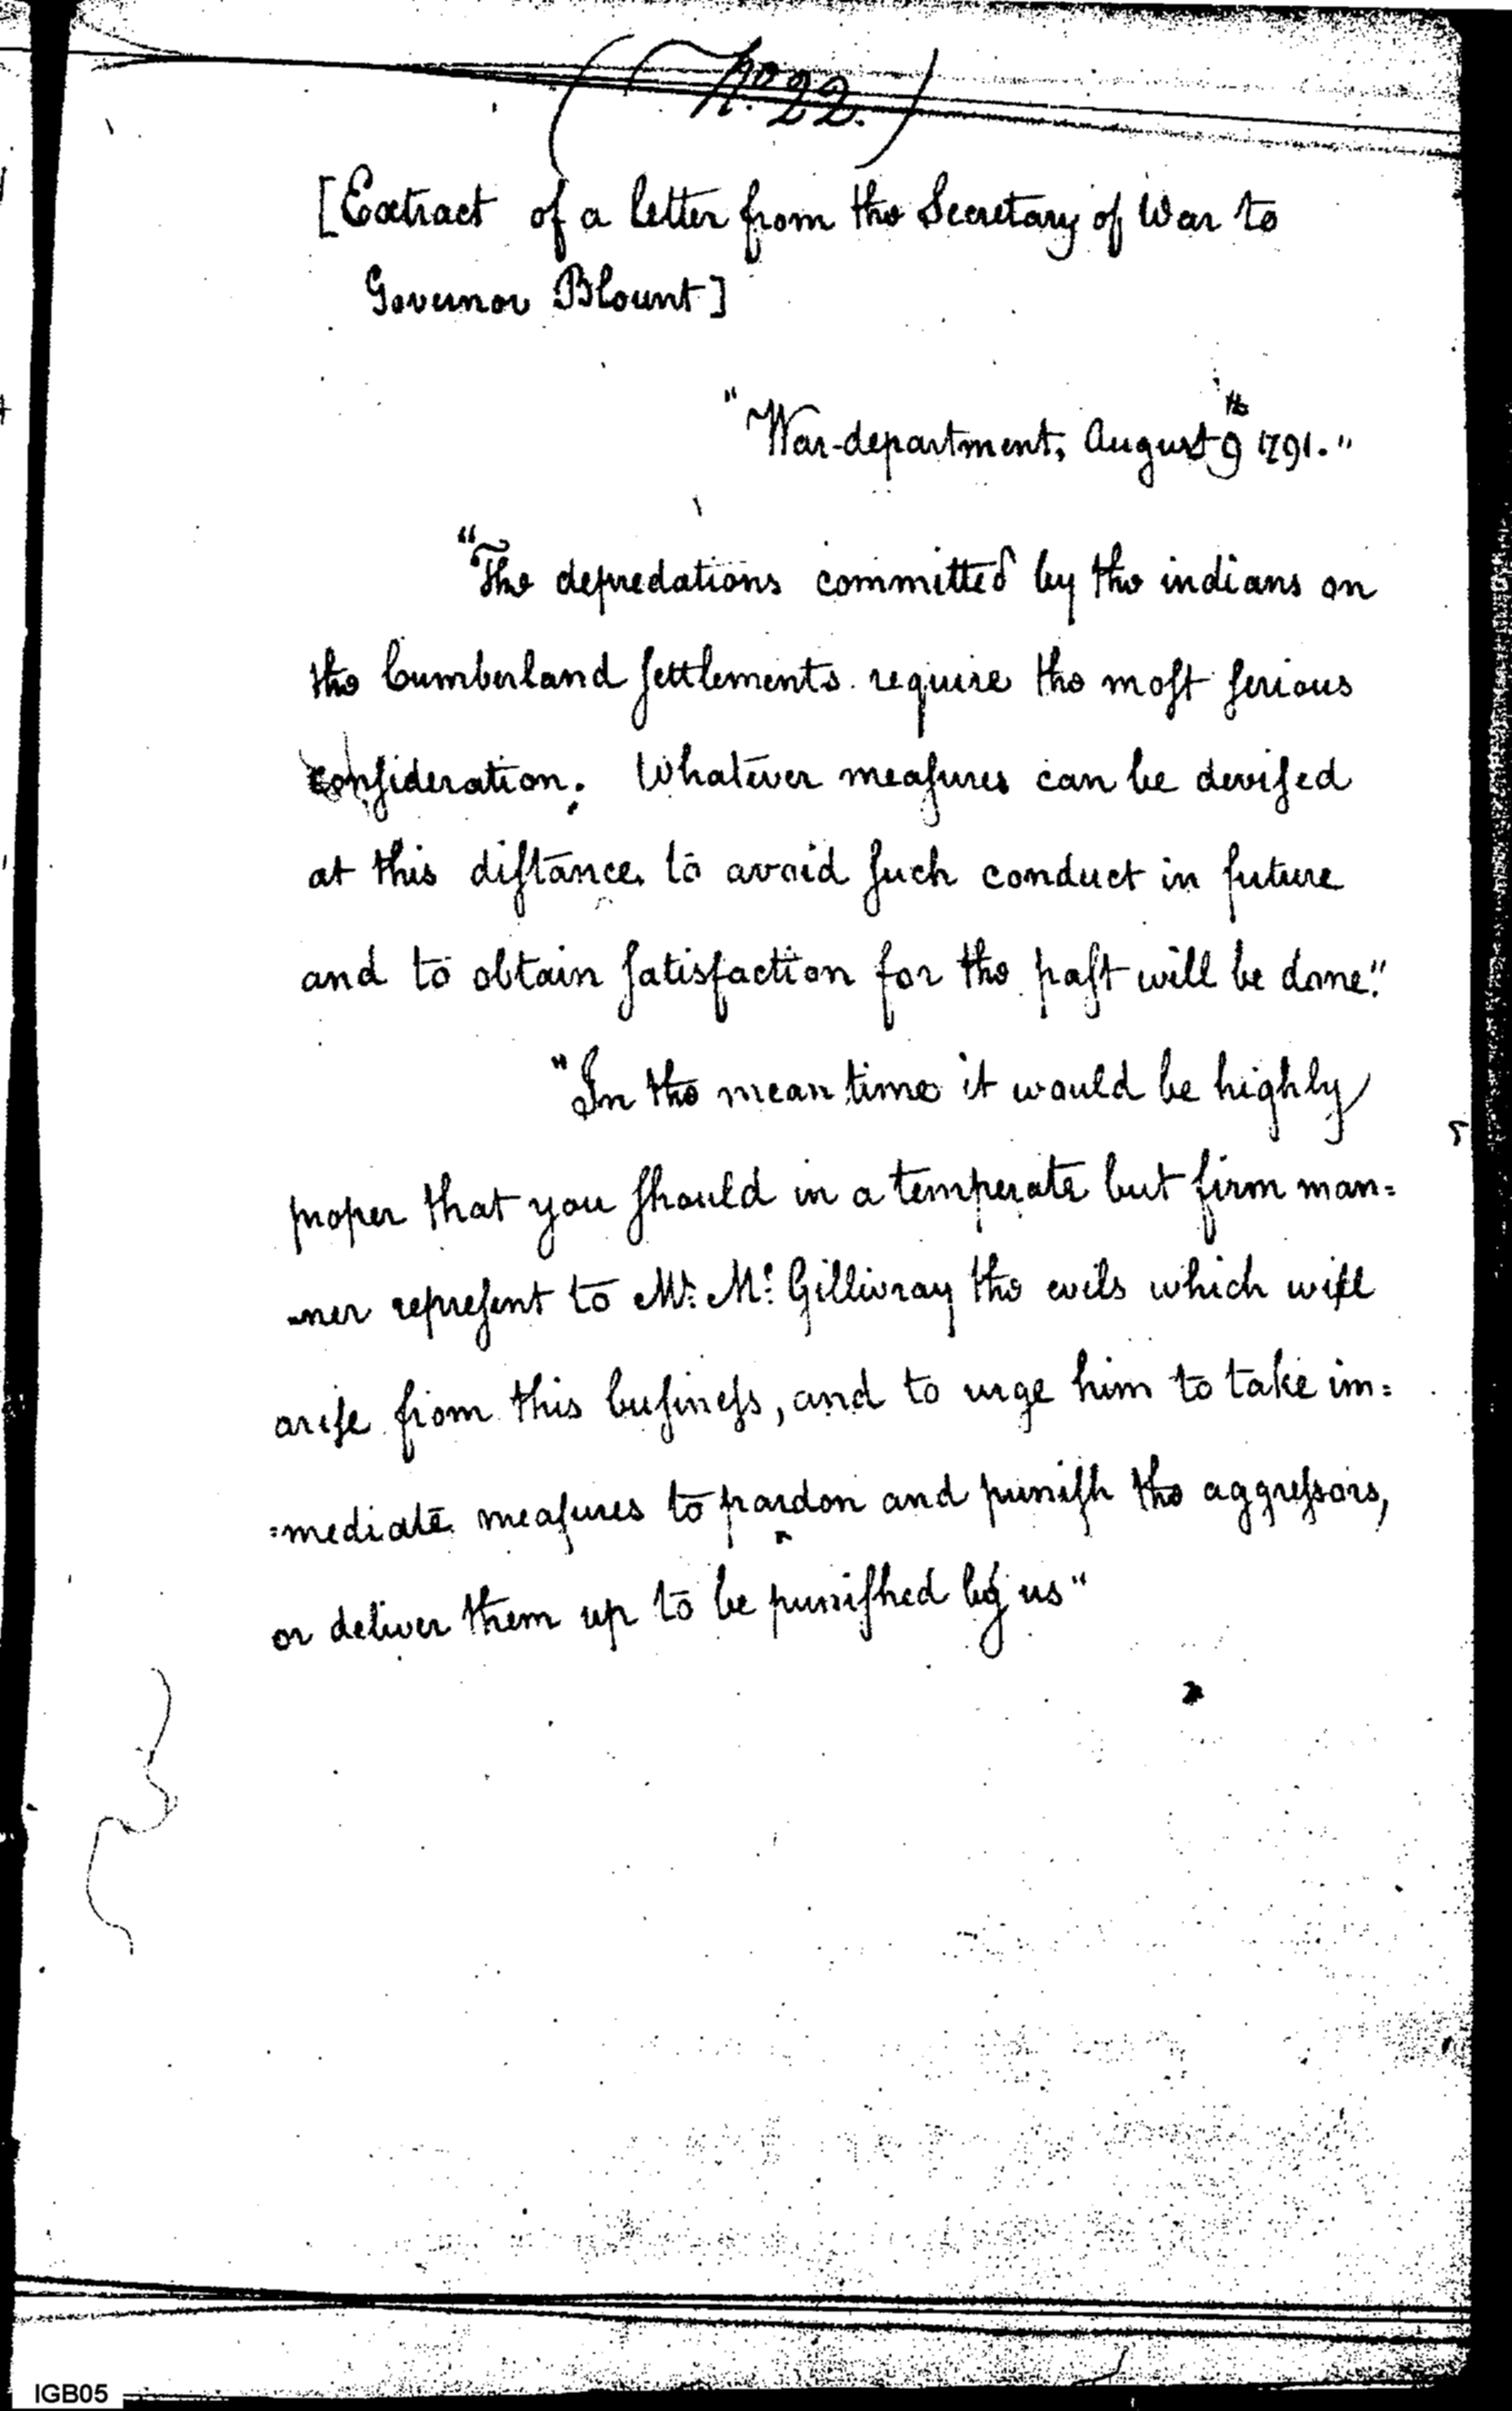 (No. 22.)
[Extract of a letter from the Secretary of War to
Governor Blount]
"War-department, August 9th 1791."
"The depredations committed by the indians on
the Cumberland ſettlements require the moſt ſerious
conſideration. Whatever meaſures can be deviſed
at this diſtance to avoid ſuch conduct in future
and to obtain ſatisfaction for the paſt will be done."
"In the mean time it would be highly
proper that you ſhould in a temperate but firm man=
-ner repreſent to Mr. Mc. Gillivray the evils which will
ariſe from this buſineſs, and to urge him to take im=
=mediate meaſures to pardon and puniſh the aggreſsors,
or deliver them up to be puniſhed by us"
IGB05